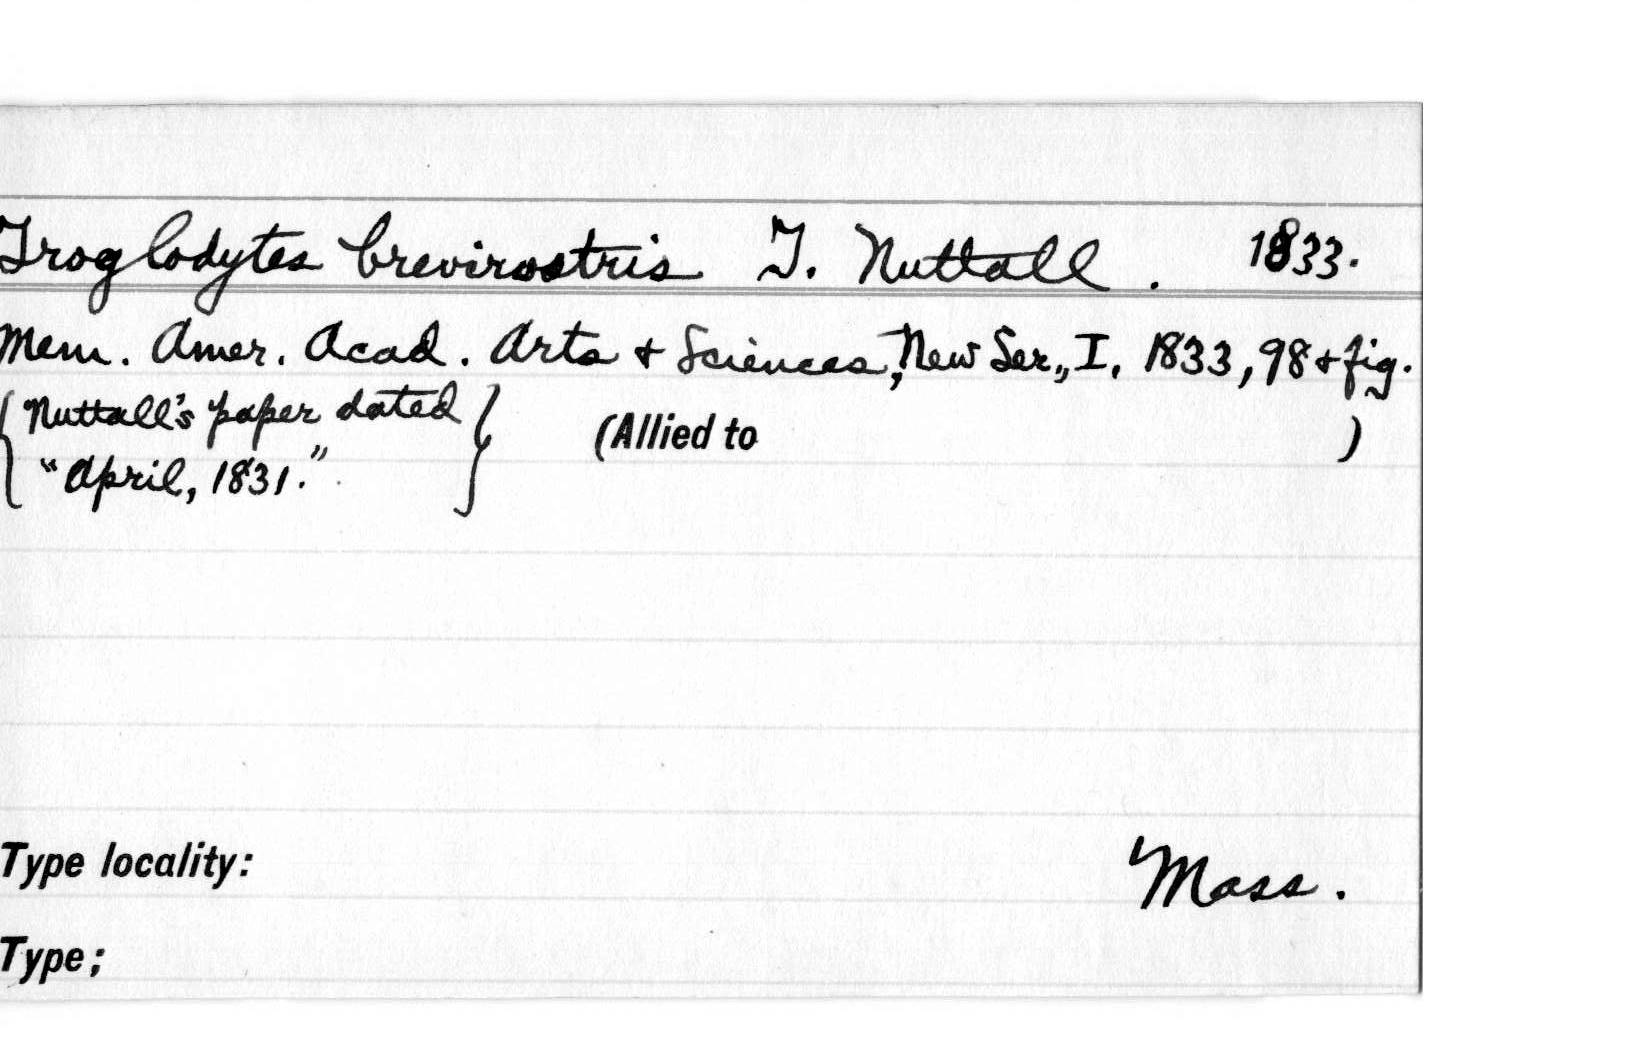 Troglodytes brevirostris T. Nuttall. 1833.
Mem. Amer. Acad. Arts & Sciences, New Ser., I, 1833, 98 & fig.
{Nuttall's paper dated
"April, 1831."}
(Allied to )
Type locality: Mass.
Type;